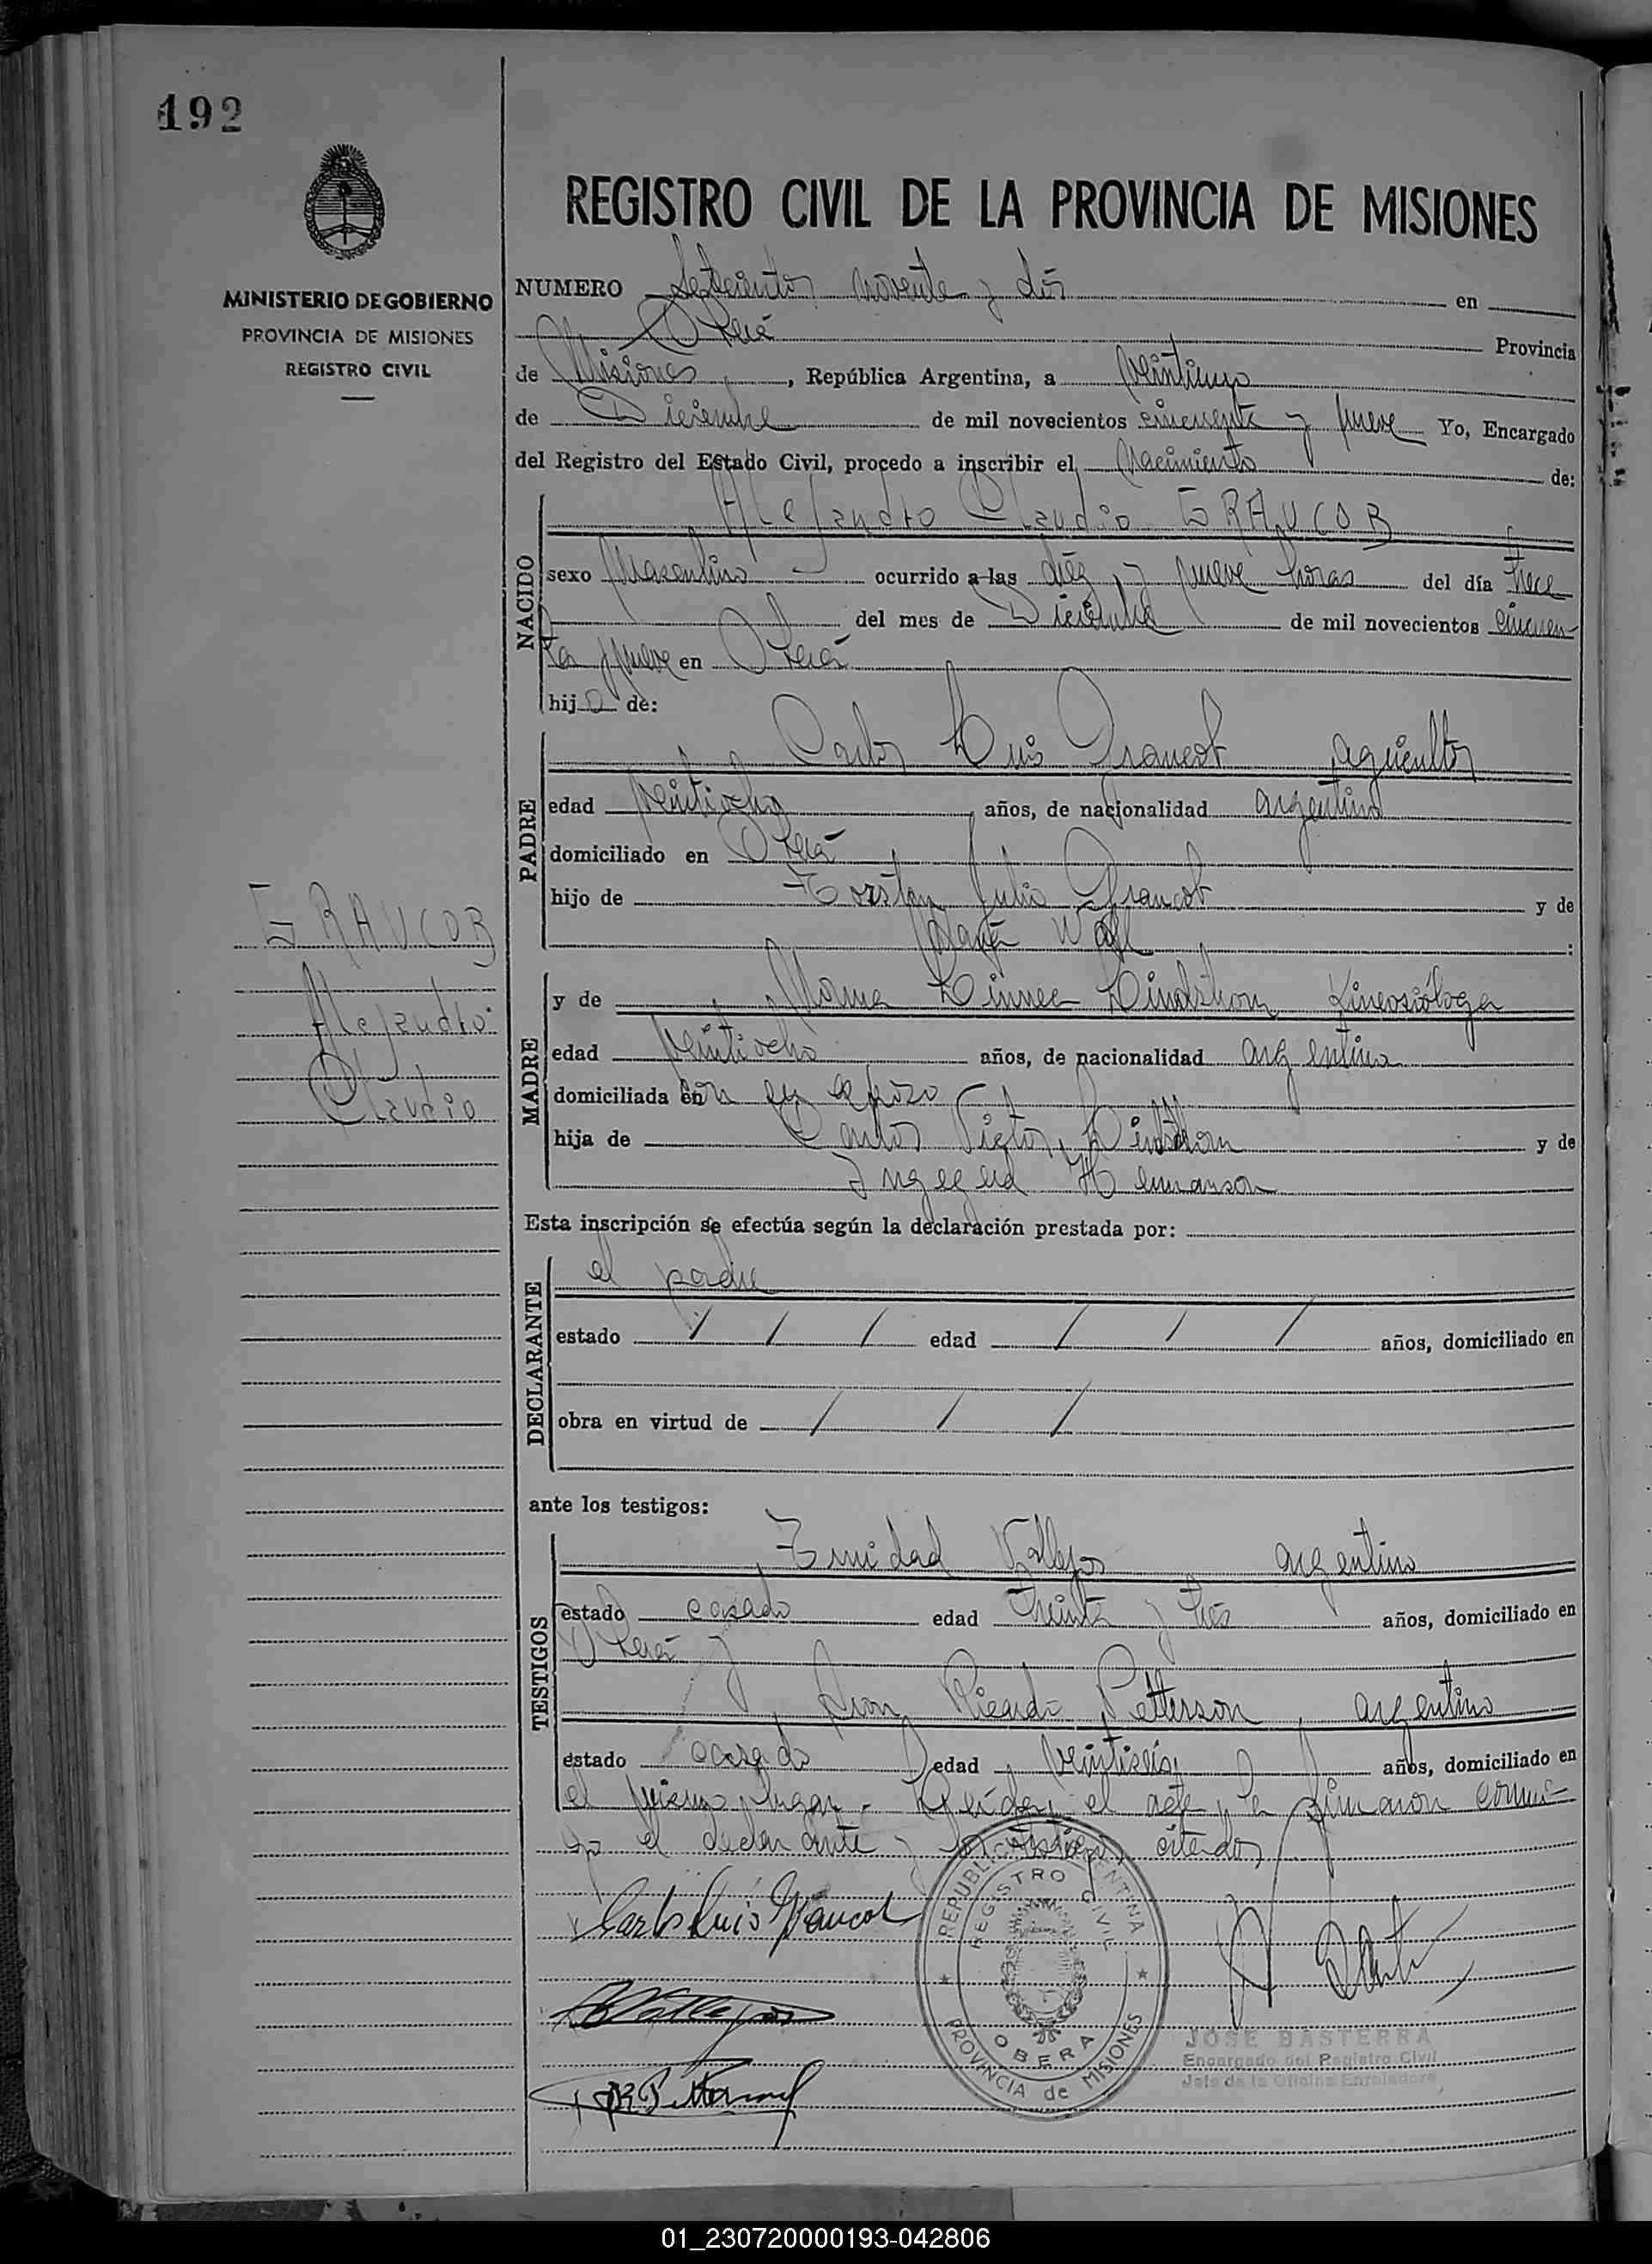 192
MINISTERIO DE GOBIERNO
PROVINCIA DE MISIONES
REGISTRO CIVIL
REGISTRO CIVIL DE LA PROVINCIA DE MISIONES
NUMERO Setecientos noventa y dós en
Oberá Provincia
de Misiones, República Argentina, a veintiuno
de Diciembre de mil novecientos cincuenta y nueve Yo, Encargado
del Registro del Estado Civil, procedo a inscribir el Nacimiento de:
NACIDO
Alejandro Claudio GRAUCOB
sexo Masculino ocurrido a las diez y nueve horas del día trece
del mes de Diciembre de mil novecientos cincuen-
ta y nueve en Oberá
hijo de:
PADRE
Carlos Luis Graucob agricultor
edad veintiocho años, de nacionalidad argentino
domiciliado en Oberá
hijo de Torsten Julio Graucob y de
Wall :
GRAUCOB
Alejandro
Claudio
MADRE
y de Linnea Lindstrom Kinesióloga
edad veintiocho años, de nacionalidad argentina
domiciliada en con su esposo
hija de Carlos Victor Lindstrom y de
Ingegerd Hermanson
Esta inscripción se efectúa según la declaración prestada por:
DECLARANTE
el padre
estado / / / edad / / / años, domiciliado en
obra en virtud de / / /
ante los testigos:
TESTIGOS
Trinidad Vallejos argentino
estado casado edad treinta y tres años, domiciliado en
Oberá y
don Ricardo Petterson, argentino
estado casado edad veintiseis años, domiciliado en
el mismo lugar.- Leída el acta, la firmaron conmi-
go el declarante y los testigos citados
Carlos Luis Graucob
REPUBLICA ARGENTINA
REGISTRO CIVIL
OBERA
PROVINCIA de MISIONES
JOSE BASTERRA
Encargado del Registro Civil
Jefe de la Oficina Enroladora
01_230720000193-042806